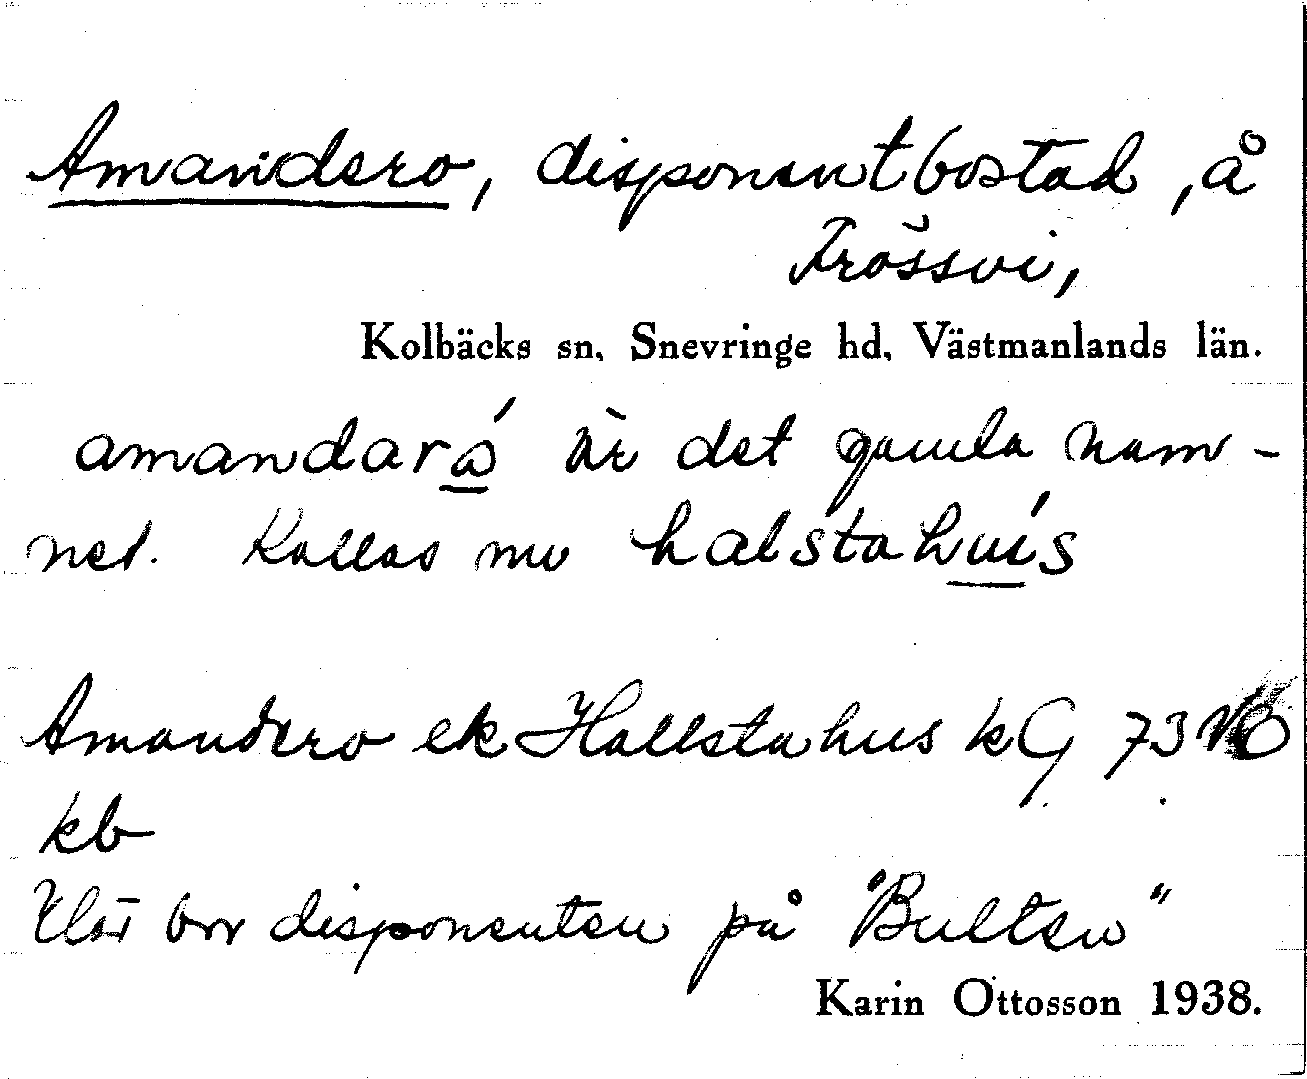 Amandero, disponentbostad, å
Frössvi,
Kolbäcks sn, Snevringe hd, Västmanlands län.
amandaró är det gamla nam-
net. Kallas nu halstahuís
Amandero ek Hallstahus kG 73 NÖ
kb
Här bor disponenten på "Bulten"
Karin Ottosson 1938.